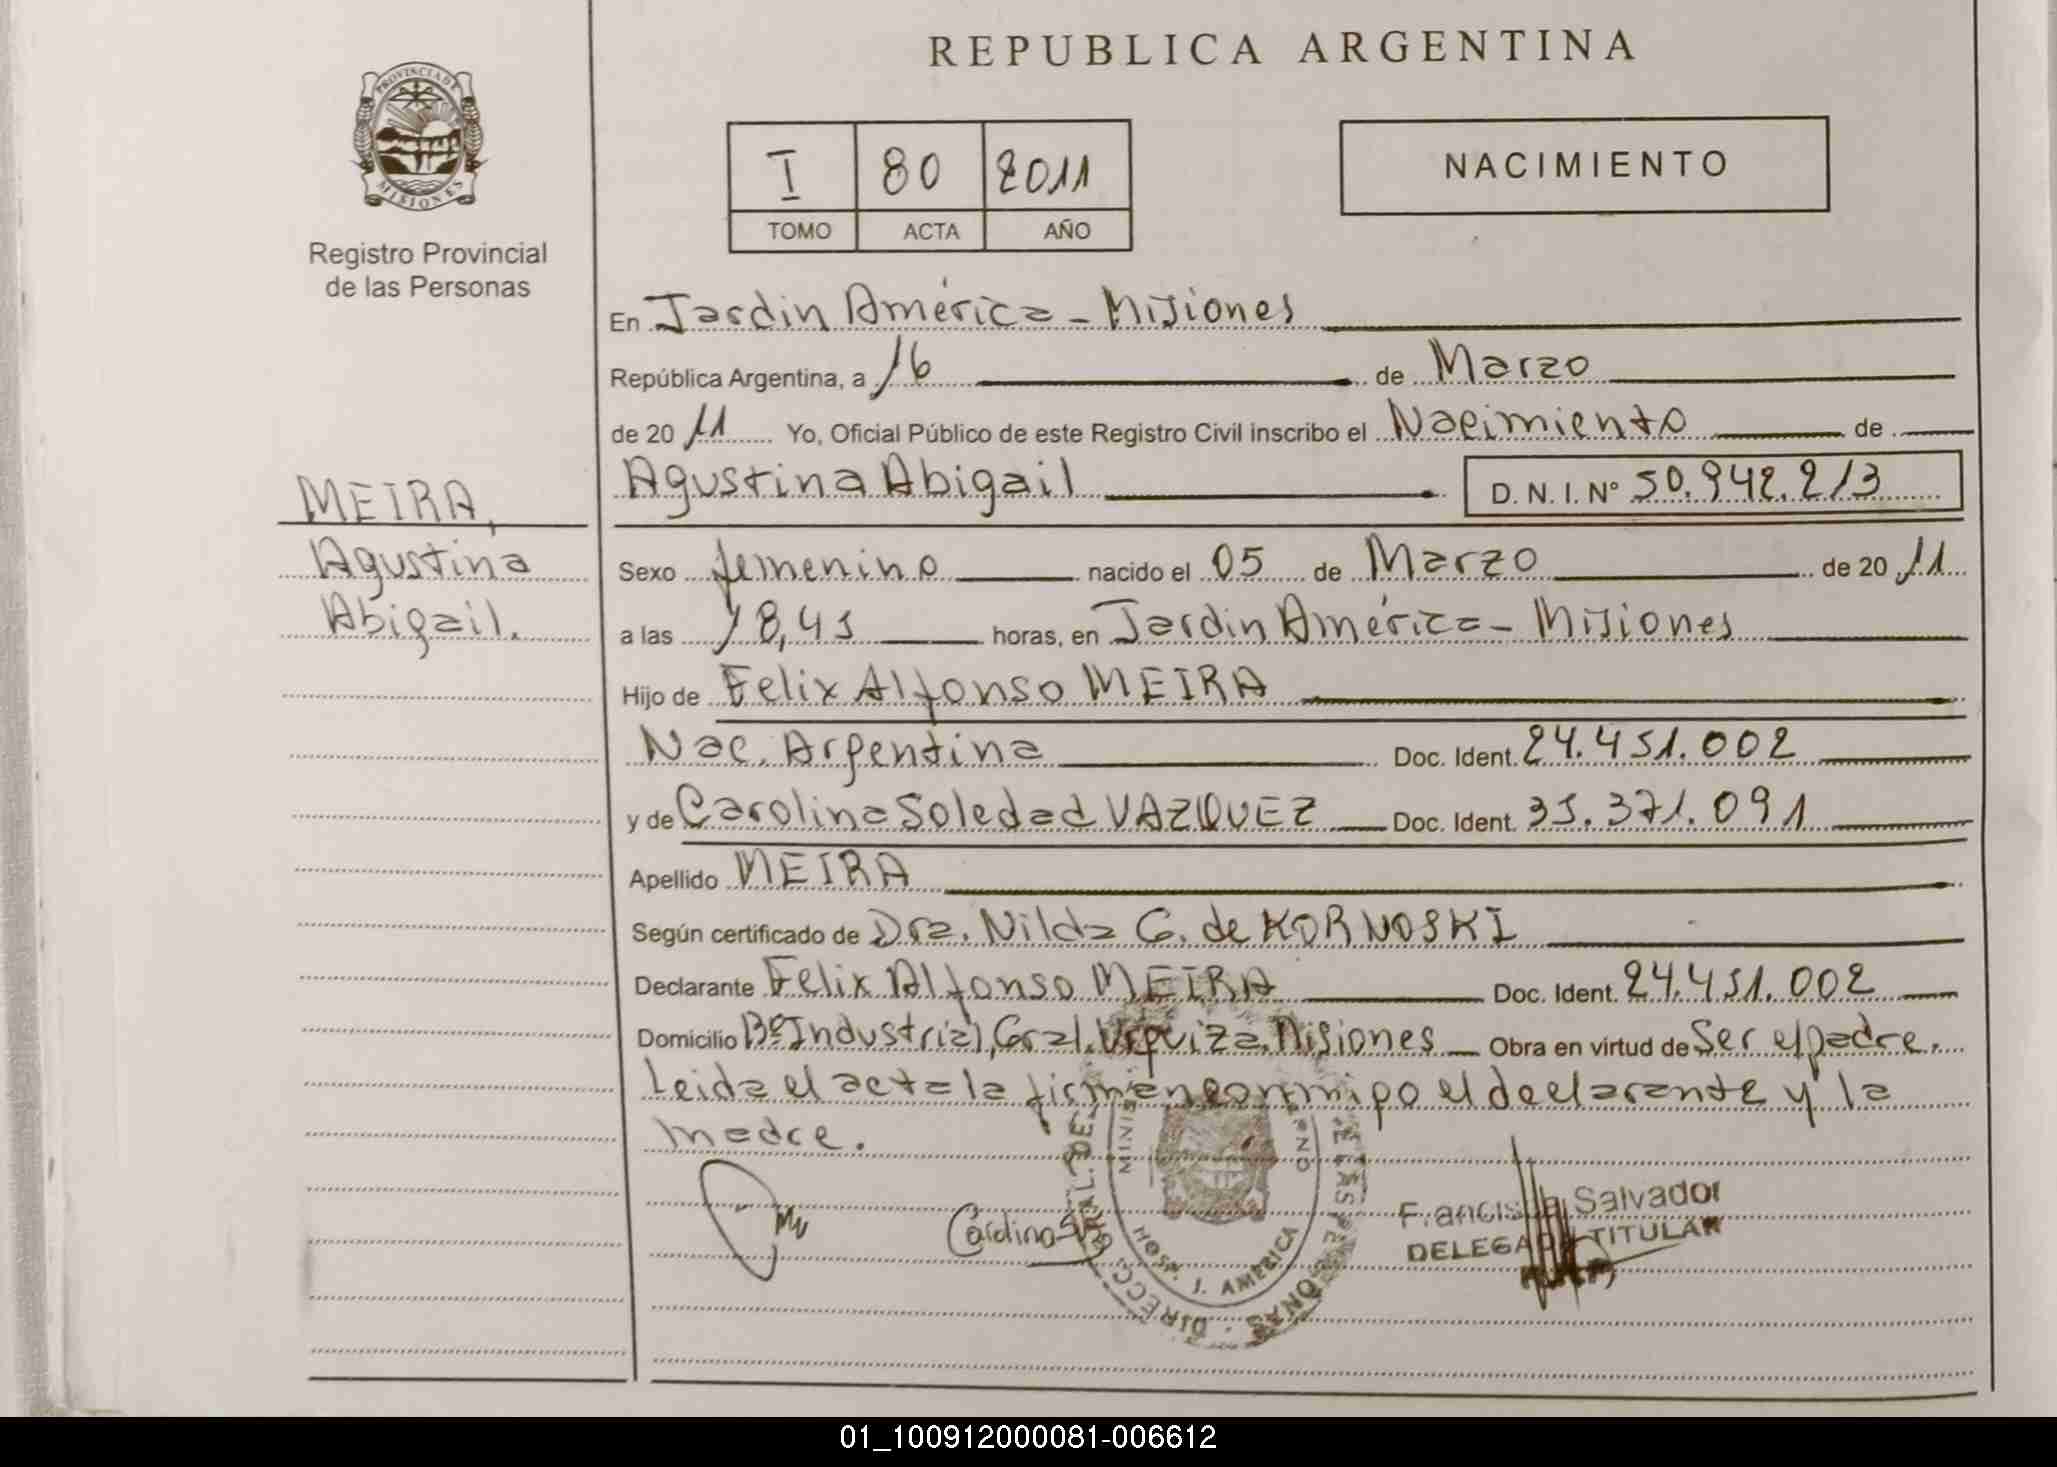 REPUBLICA ARGENTINA
PROVINCIA DE MISIONES
Registro Provincial
de las Personas
I 80 2011
TOMO ACTA AÑO
NACIMIENTO
En Jardin América - Misiones
República Argentina, a 16 de Marzo
de 2011 Yo, Oficial Público de este Registro Civil inscribo el Nacimiento de
Agustina Abigail D. N. I. Nº 50.942.213
MEIRA,
Agustina
Abigail.
Sexo femenino nacido el 05 de Marzo de 2011
a las 18,45 horas, en Jardin América - Misiones
Hijo de Felix Alfonso MEIRA
Nac. Argentina Doc. Ident. 24.451.002
y de Carolina Soledad VAZQUEZ Doc. Ident. 35.371.091
Apellido MEIRA
Según certificado de Dra. Nilda G. de KORNOSKI
Declarante Felix Alfonso MEIRA Doc. Ident. 24.451.002
Domicilio Bº Industrial, Gral. Urquiza. Misiones Obra en virtud de Ser el padre.
Leida el acta la firman conmigo el declarante y la
madre.
HOSP. J. AMERICA
Salvador
TITULAR
01_100912000081-006612